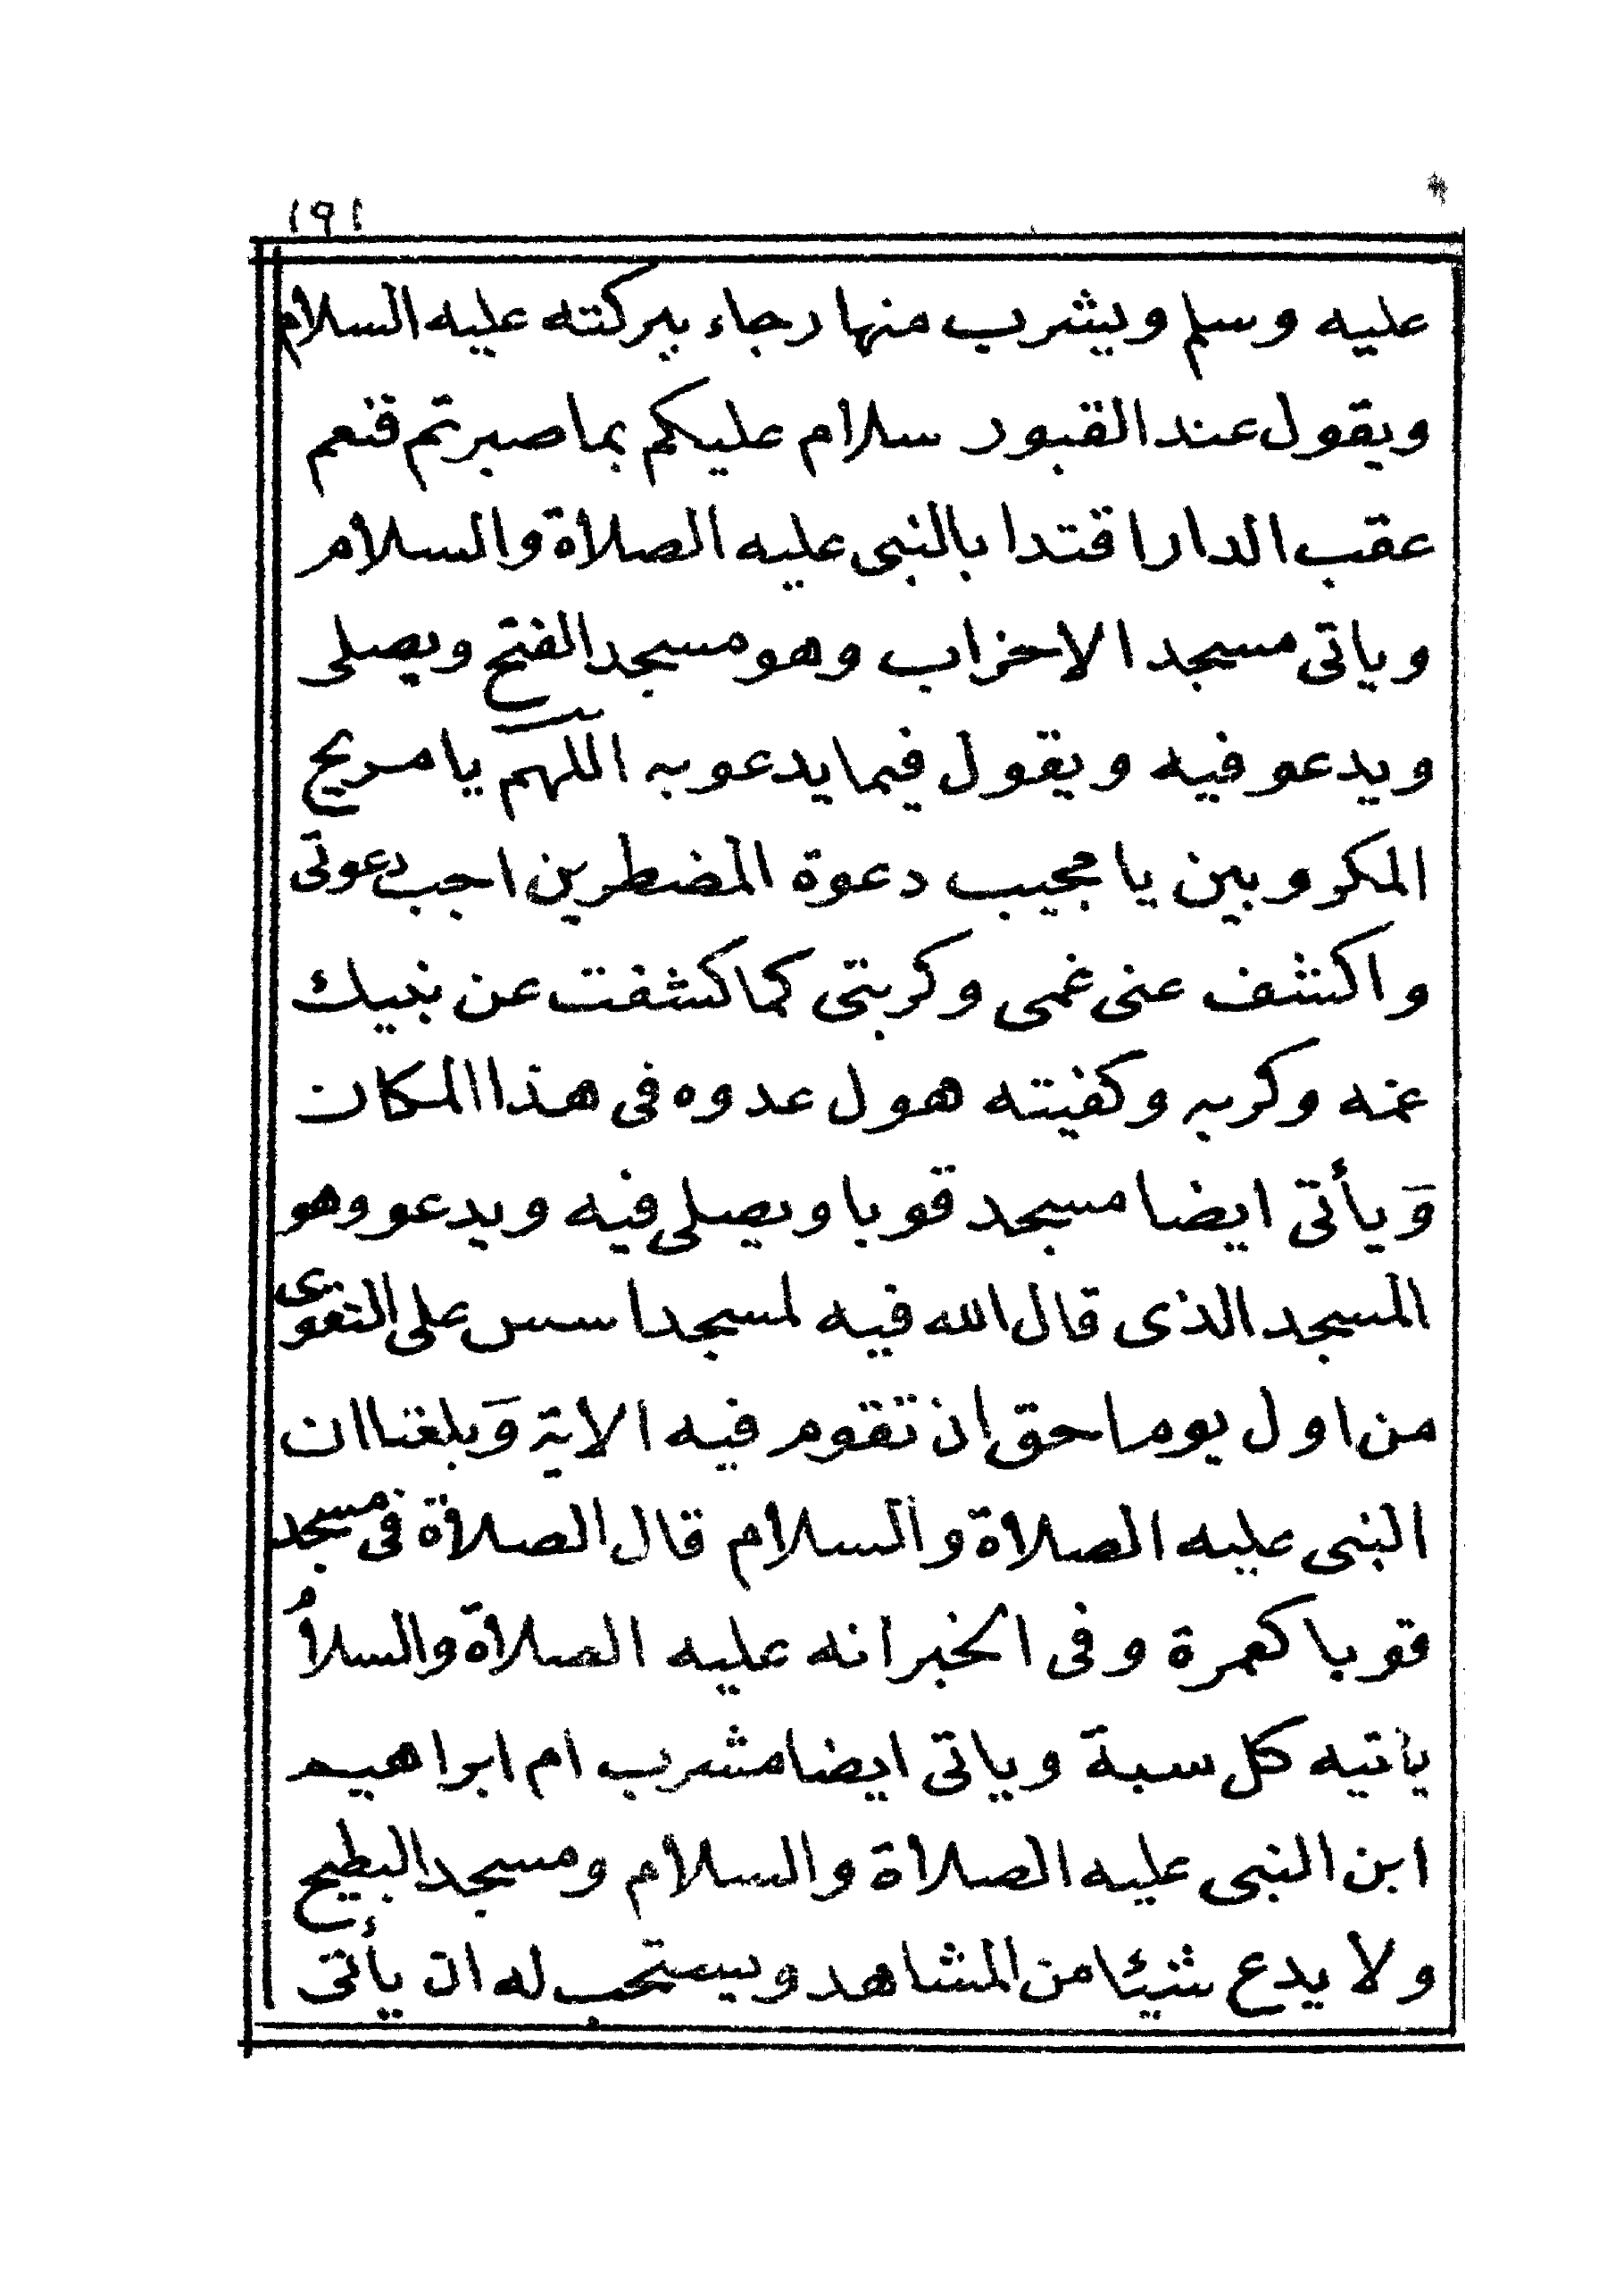 ١٩١
عليه وسلم ويشرب منها رجاء بركته عليه السلام
ويقول عند القبور سلام عليكم بما صبرتم فنعم
عقب الدار اقتدا بالنبى عليه الصلاة والسلام
وياتى مسجد الاحزاب وهو مسجد الفتح ويصلى
ويدعو فيه ويقول فيما يدعو به اللهم يا مريح
المكروبين يا مجيب دعوة المضطرين اجب دعوتى
واكشف عنى غمى وكربتى كما كشفت عن نبيك
غمه وكربه وكفيته هول عدوه فى هذا المكان
وَيأتى ايضا مسجد قوبا ويصلى فيه ويدعو وهو
المسجد الذى قال الله فيه لمسجد اسس على التقوى
من اول يوم احق ان تقوم فيه الاية وَبلغنا ان
النبى عليه الصلاة والسلام قال الصلاة فى مسجد
قوبا كعمرة وفى الخبر انه عليه الصلاة والسلام
يأتيه كل سبة وياتى ايضا مشرب ام ابراهيم
ابن النبى عليه الصلاة والسلام ومسجد البطيح
ولا يدع شيئا من المشاهد ويستحب له ان يأتى